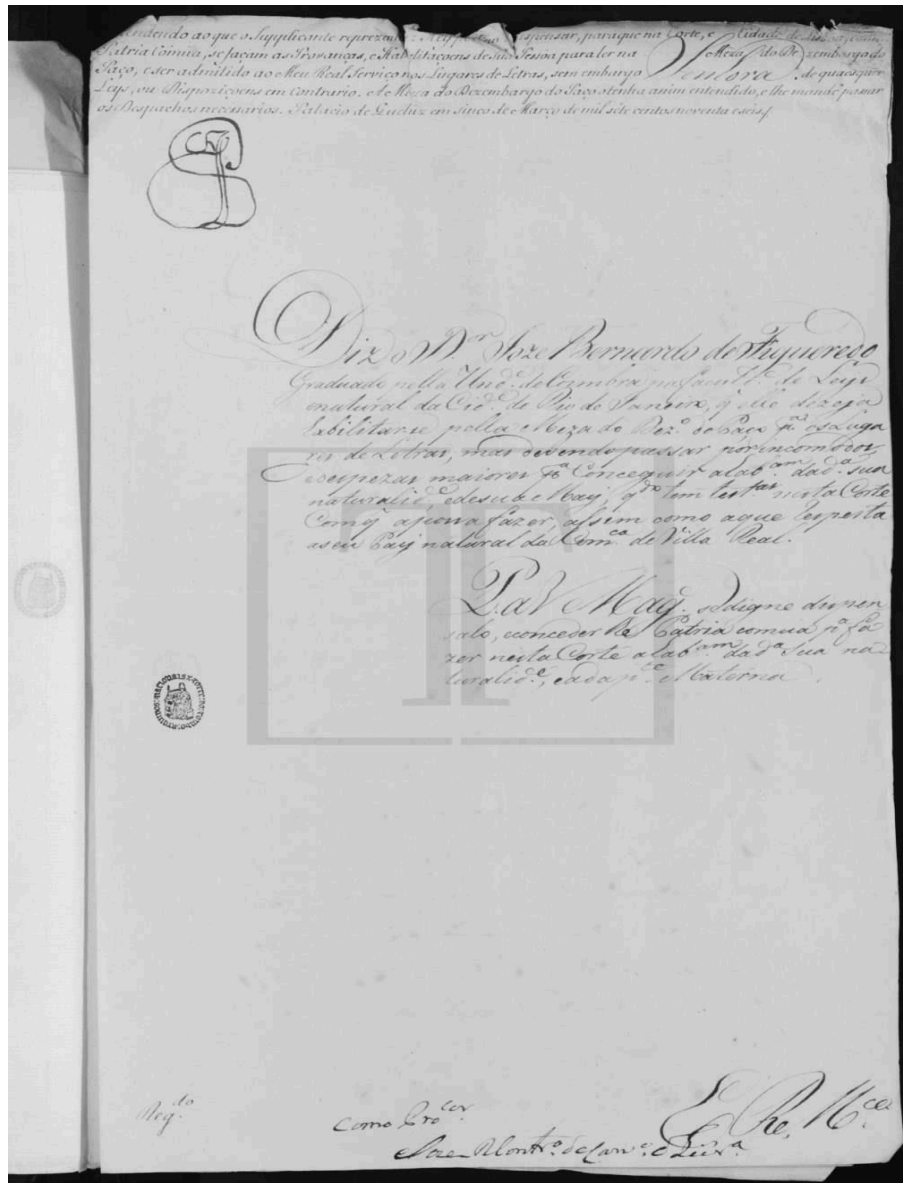 endendo ao que o Supplicante reprezen pensar, para que na Corte, e Cidade de Lisboa, como
Patria Cómua, se façam as Provanças, e Habilitaçoens de sua Pessoa para ler na Meza do Dezembargo do
Paço, e ser admitido ao Meu Real Serviço nos Lugares de Letras, sem embargo de quaesquer
Senhora
Leys, ou Dispoziçoens em Contrario. A Meza do Dezembargo do Paço o tenha assim entendido, e lhe mande passar
os Despachos necesarios. Palacio de Queluz em sinco de Março de mil sete centos noventa e seis
Diz o D.or Joze Bernardo de Figueredo
Graduado pella Un.de de Coimbra na Facul.de de Leys
e natural da Cid.e do Rio de Janeiro, q elle dezeja
habilitarse pella Meza do Dez.o do Paço p.a os Luga
res de Letras, mas devendo passar por incomodos,
e despezas maiores p.a Conceguir a hab.am da d.a sua
naturalid.e, e de sua May, q.do tem test.as nesta Corte
Com q a possa fazer, assim como a que respeita
a seu Pay natural da Com.ca de Villa Real.
P. a V Mag.e se digne dispen
salo, e conceder lhe Patria comua p.a fa
zer nesta Corte a hab.am da d.a sua na
turalid.e, e da p.te Materna.
E. R. M.ce
Reg.do
Como Pro.cor